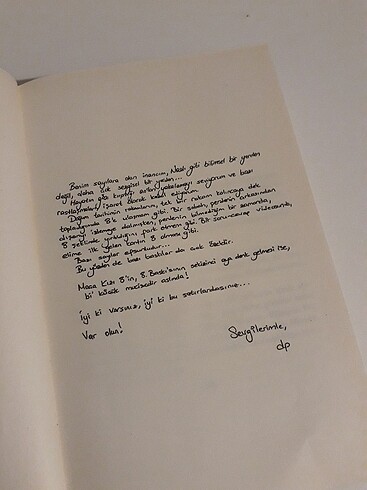 Benim sayılara olan inancım, Nash gibi bilimsel bir yerden
değil, daha çok sezgisel bir yerden...
Hayatın göz kırptığı anları yakalamayı seviyorum ve bazı
rastlaşmaları işaret olarak kabul ediyorum.
Doğum tarihinin rakamlarını, tek bir rakam kalıncaya dek
toplayınca 8'e ulaşmam gibi. Bir sabah, perdenin arkasından
dışarıyı izlemeye dalmışken, perdenin bilmediğim bir zamanda,
8 şeklinde yırtıldığını fark etmem gibi. Bir soru-cevap videosunda,
elime ilk gelen kartın 8 olması gibi.
Bazı sayılar efsunludur...
Bu yüzden de bazı baskılar da çok özeldir.
Maça Kızı 8'in, 8. Baskı'sının sekizinci aya denk gelmesi ise,
bi' küçük mucizedir aslında!
İyi ki varsınız, iyi ki bu satırlardasınız...
Var olun!
Sevgilerimle,
dp